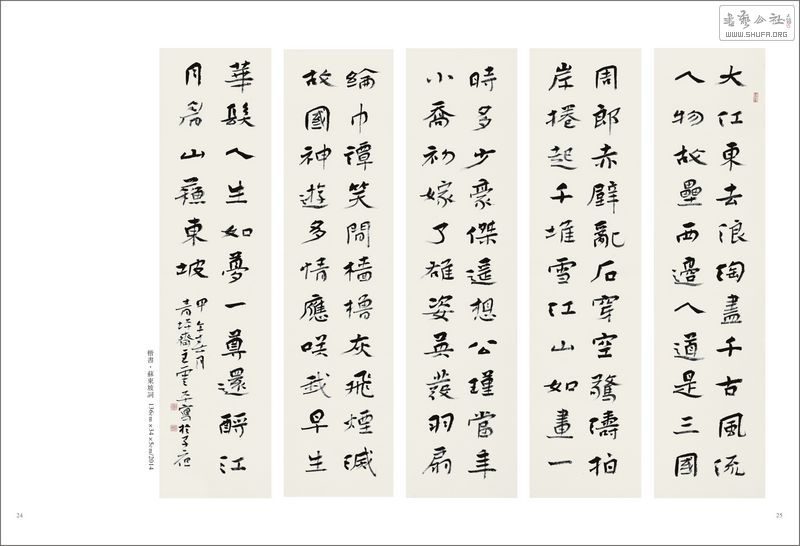 書藝公社
WWW.SHUFA.ORG
大江東去浪淘盡千古風流
人物故壘西邊人道是三國
周郎赤壁亂石穿空驚濤拍
岸捲起千堆雪江山如畫一
時多少豪傑遥想公瑾當年
小喬初嫁了雄姿英發羽扇
綸巾譚笑間檣櫓灰飛煙滅
故國神遊多情應咲我早生
華髮人生如夢一尊還酹江
月眉山蘇東坡
甲午春月
青坪齋王雲平寫於子夜
楷書·蘇東坡詞 136cm x34 x5cm/2014
24
25